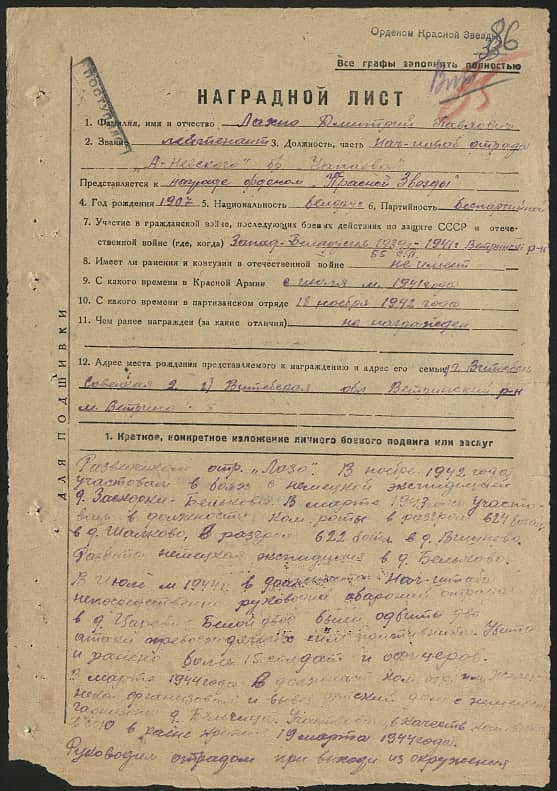 Орденом Красной Звезды
86
Все графы заполнять полностью
ПОСТУПИЛО
НАГРАДНОЙ ЛИСТ
1. Фамилия, имя и отчество Лахно Дмитрий Павлович
2. Звание лейтенант 3. Должность, часть Нач-штаба отряда
"А-Невского" бр. Чапаева
Представляется к награде орденом "Красной Звезды"
4. Год рождения 1907 5. Национальность белорус 6. Партийность беспартийный
7. Участие в гражданской войне, последующих боевых действиях по защите СССР и отече-
ственной войне (где, когда) Запад-Белоруссия 1939г. 1941г. Ветринский р-н
8. Имеет ли ранения и контузии в отечественной войне не имеет
9. С какого времени в Красной Армии с июля м. 1941 года
10. С какого времени в партизанском отряде 18 ноября 1942 года
11. Чем ранее награжден (за какие отличия) не награжден
12. Адрес места рождения представляемого к награждению и адрес его семьи г. Витебск
Советская 2 Витебская обл Ветринский р-н
м. Ветрино
ДЛЯ ПОДШИВКИ
1. Краткое, конкретное изложение личного боевого подвига или заслуг
отр. "Лазо". В ноябре 1942 года
участвовал в боях с немецкой экспедицией
д. В марте 1943 года участво-
вал в должности ком. роты в разгром
в д. В разгром в д.
немецкой экспедиции в д. Бельково.
В Июле м 1944г. в должности Нач-штаба
непосредственно руководил обороной отряда
в д. были отбиты два
атаки превосходящих сил противника. Убито
и ранено более 15 солдат и офицеров.
В марте 1944 года в должности ком. отр.
организовал и вывез детский дом с немецкого
гарнизона д. Бельчица. Участвовал в качестве
в районе 19 марта 1944 года.
Руководил отрядом при выходе из окружения